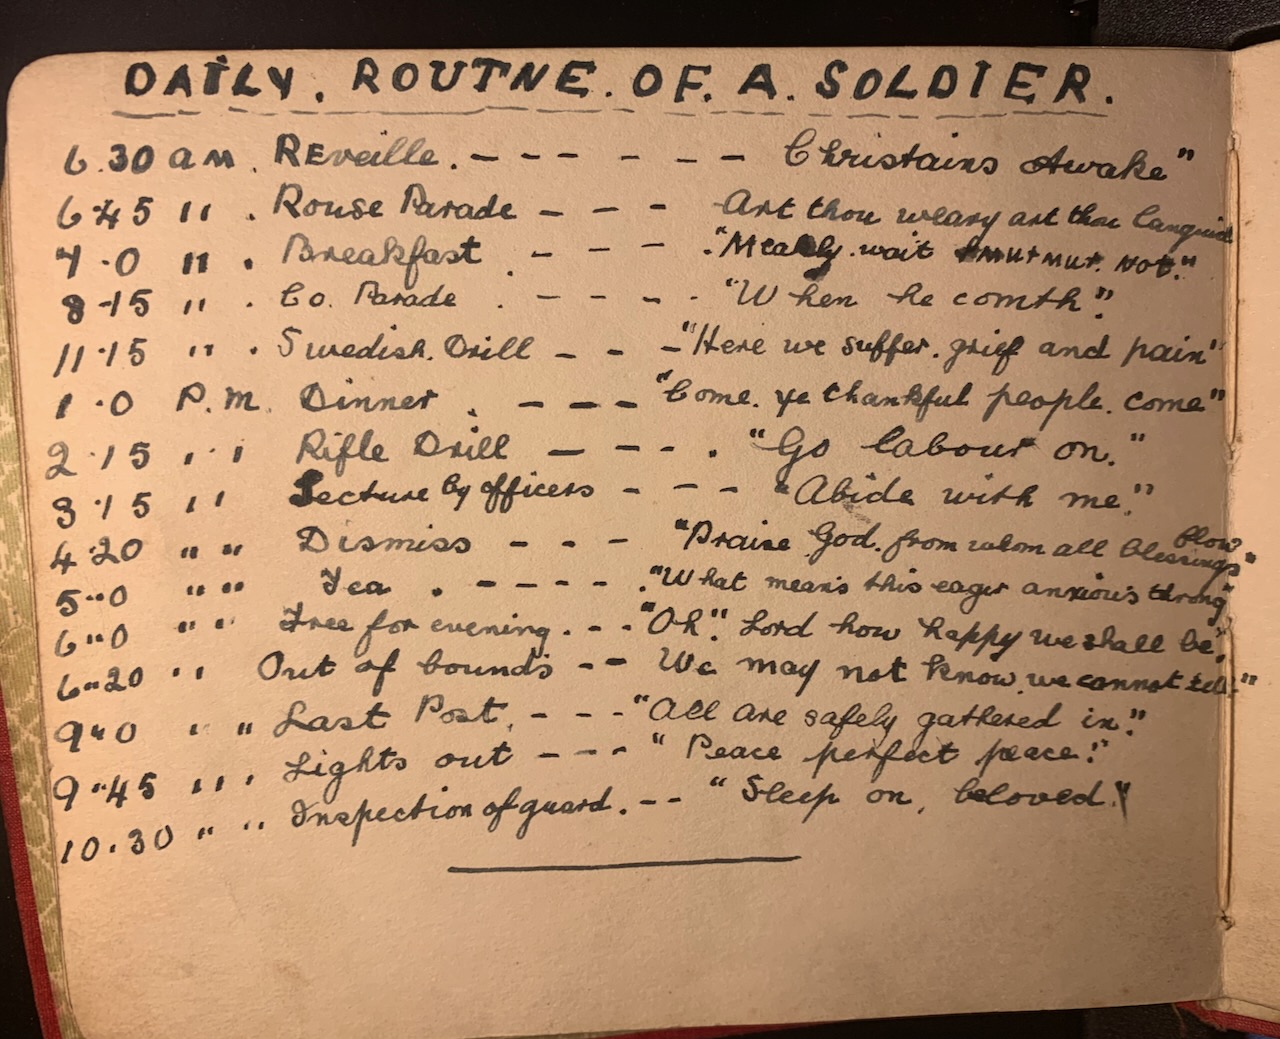 DAILY. ROUTNE. OF. A. SOLDIER.
6.30 am. REveille. - - - - - - Christains Awake"
6.45 " . Rouse Parade - - - Art thou weary art thou languid
7.0 " . Breakfast . - - - "Meakly wait murmur. Not."
8.15 " . Co. Parade . - - - - "When he comth".
11.15 " . Swedish. Drill - - - "Here we suffer. grief and pain"
1.0 P.M. Dinner . - - - "Come. ye thankful people. come"
2.15 " Rifle Drill - - - - . "Go labour on."
3.15 " Lecture by officers - - - "Abide with me".
4.20 " " Dismiss - - - "Praise God. from whom all blessings flow"
5"0 " " Tea . - - - - . "What means this eager anxious throng"
6"0 " " Free for evening. - - "Oh". Lord how happy we shall be".
6"20 " Out of bounds - - We may not know. we cannot tell."
9"0 " " Last Post, - - - "All are safely gathered in".
9"45 " " Lights out - - - " Peace perfect peace."
10.30 " " Inspection of guard. - - " Sleep on, beloved."